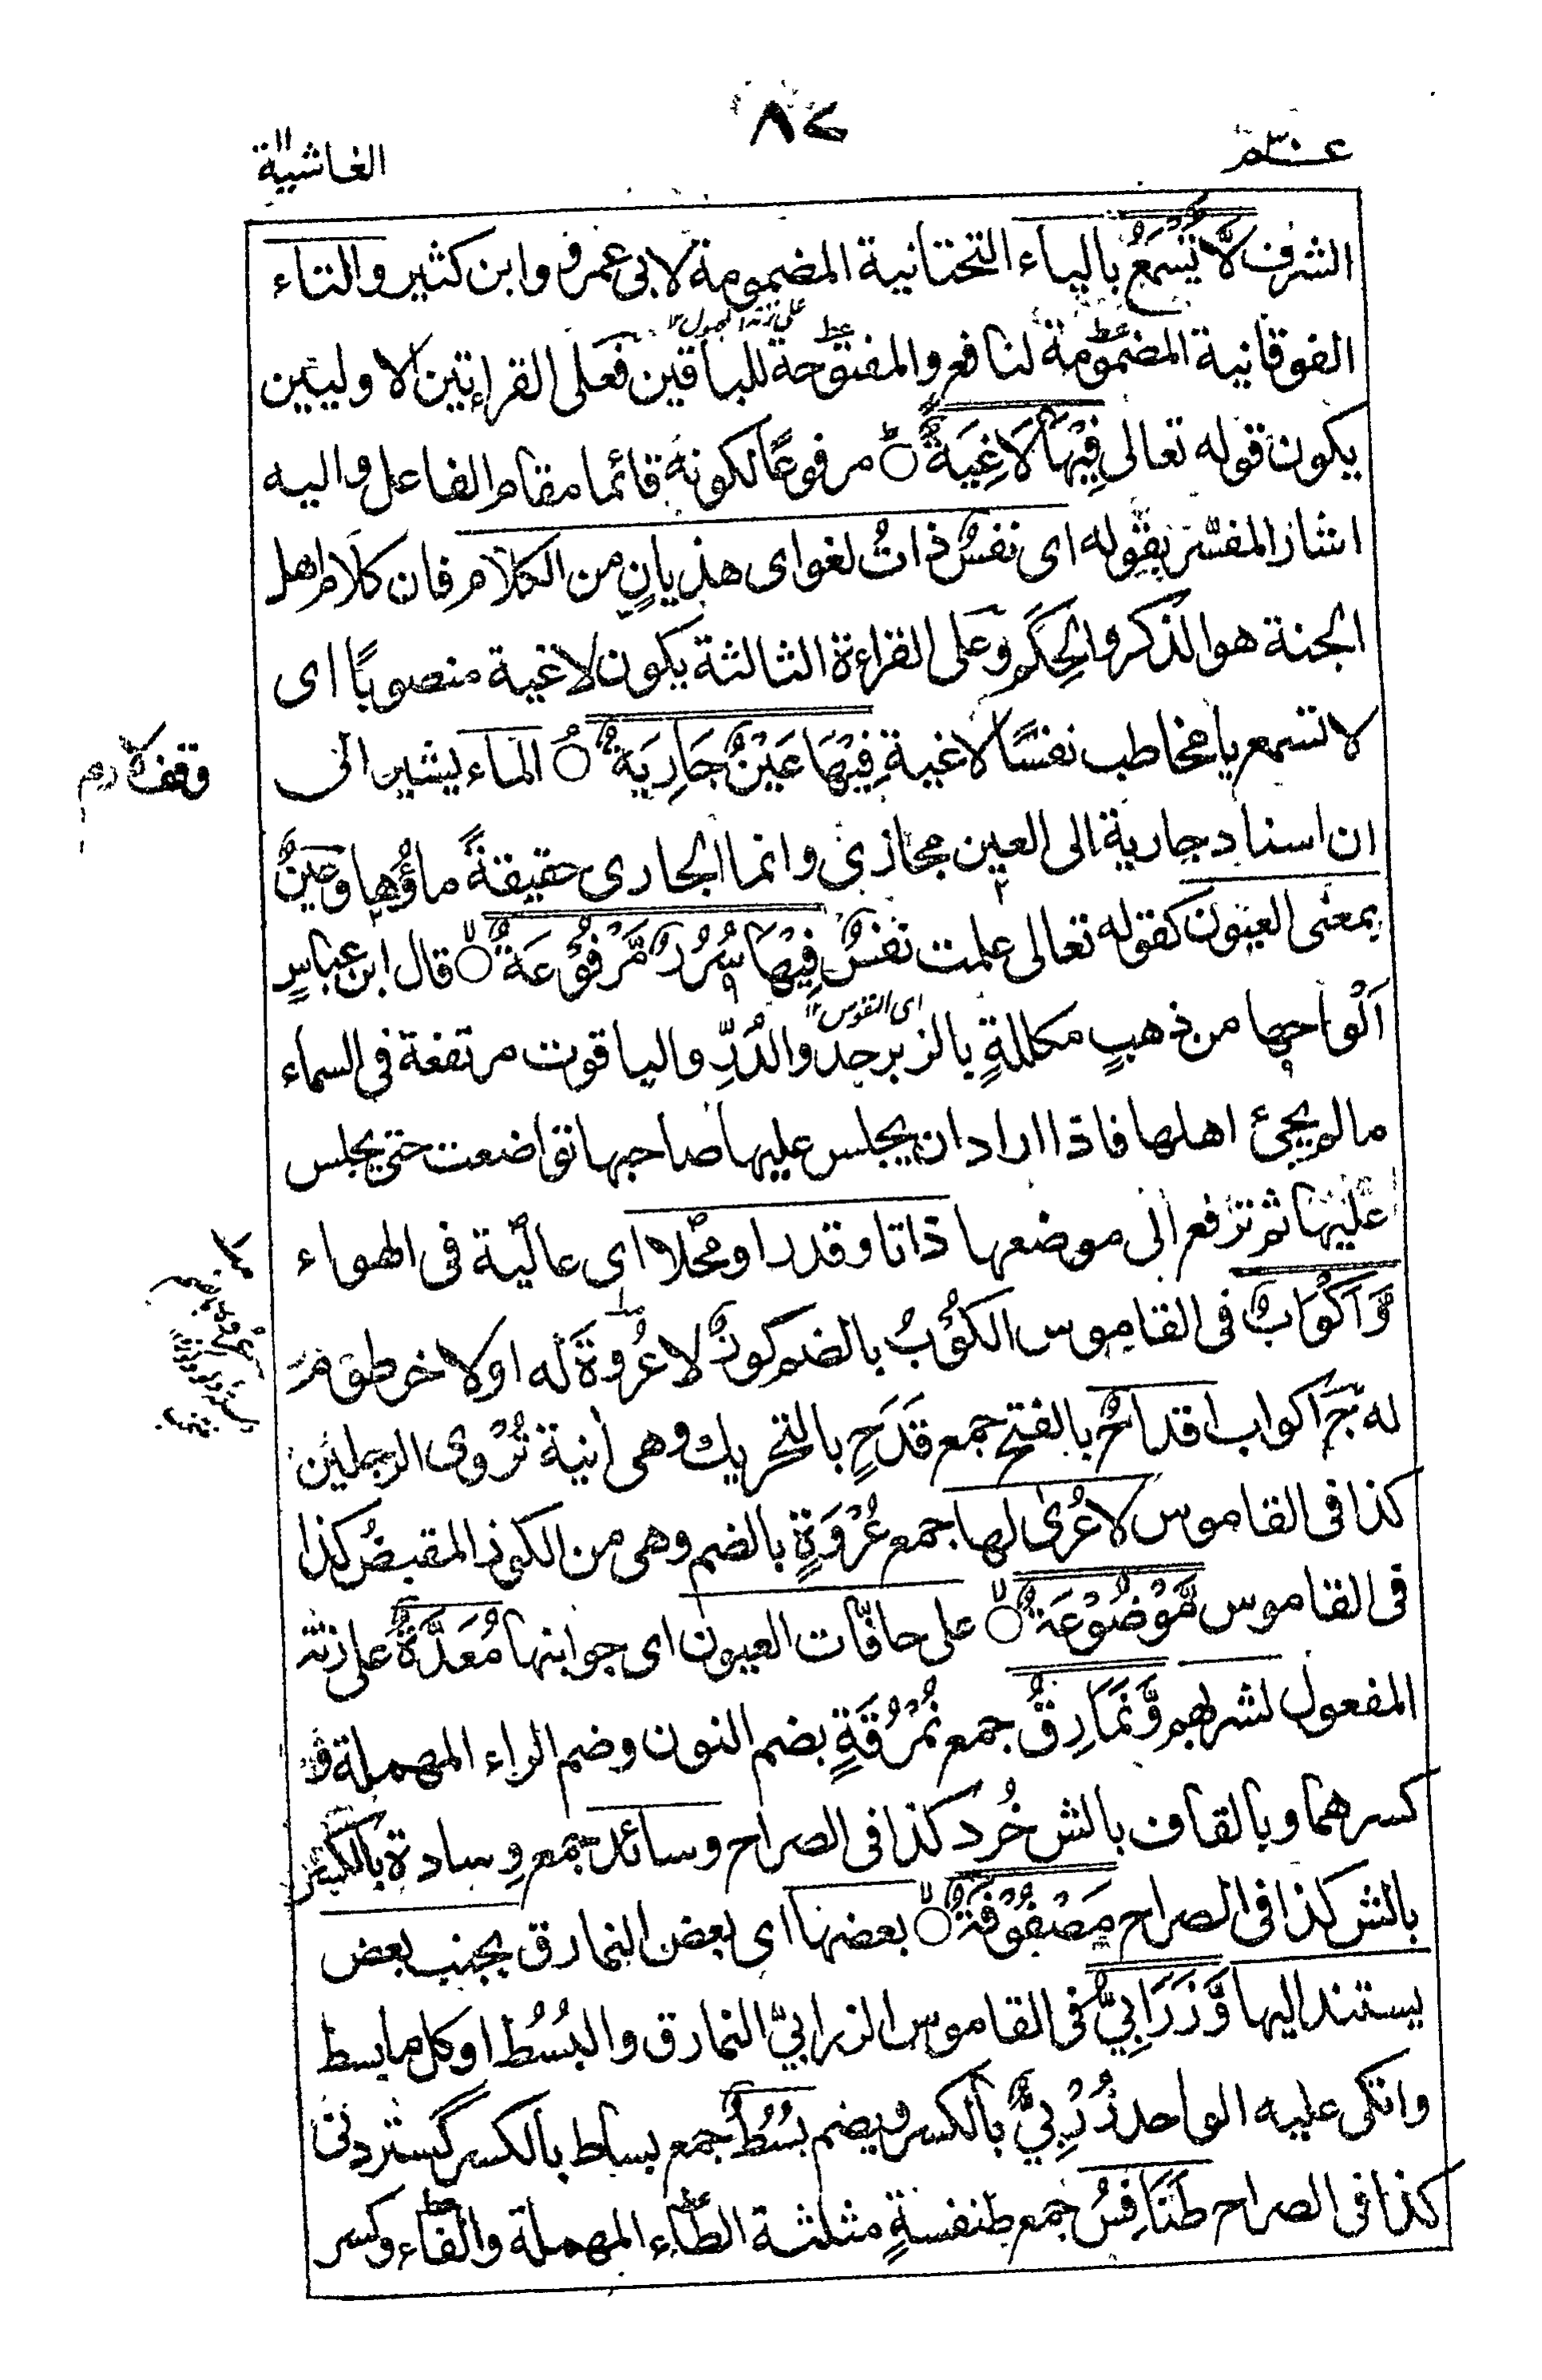 عم ٣٠
٨٧
الغاشية
الشرف لَّا يُسْمَعُ بالياء التحتانية المضمومة لابى عمرو وابن كثير والتاء
على زنة المجهول ١٢
الفوقانية المضمومة لنافع والمفتوحة للباقين فعلى القراءتين الاوليين
يكون قوله تعالى فِيْهَا لَاغِيَةٌ مرفوعًا لكونه قائما مقام الفاعل واليه
اشار المفسّر بقوله اى نفسٌ ذاتُ لغو اى هذيانٍ من الكلام فان كلام اهل
الجنة هو الذكر والحِكَم وعلى القراءة الثالثة يكون لاغية منصوبًا اى
لا تسمع يا مخاطب نفسًا لاغية فِيْهَا عَيْنٌ جَارِيَةٌ الماء يشير الى
وقف لازم
ان اسناد جارية الى العين مجازى وانما الجارى حقيقةً ماؤها وعينٌ
بمعنى العيون كقوله تعالى علمت نفسٌ فِيْهَا سُرُرٌ مَّرْفُوْعَةٌ قال ابن عباسٍ
اَلْواحها من ذهبٍ مكللةٍ بالزبرجد والدُّرِّ والياقوت مرتفعة فى السماء
مالم يجئ اهلها فاذا اراد ان يجلس عليها صاحبها تواضعت حتى يجلس
عليها ثم ترفع الى موضعها ذاتا وقدرا ومحلا اى عالية فى الهواء
وَّاَكْوَابٌ فى القاموس الكُوْبُ بالضم كوزٌ لا عُروةَ له او لا خرطوم
له ج اكواب اقداحٌ بالفتح جمع قَدَحٍ بالتحريك وهى اٰنية تُرْوى الرجلين
كذا فى القاموس لا عُرٰى لها جمع عُرْوَةٍ بالضم وهى من الكوز المقبضُ كذا
فى القاموس مَّوْضُوْعَةٌ على حافّات العيون اى جوانبها مُعَدَّةٌ على زنة
المفعول لشربهم وَّنَمَارِقُ جمع نُمْرُقَةٍ بضم النون وضم الراء المهملة و
كسرهما وبالقاف بالش خُرد كذا فى الصراح وسائد جمع وِسادة بالكسر
بالش كذا فى الصراح مَصْفُوْفَةٌ بعضها اى بعض النمارق بجنب بعض
يستند اليها وَّزَرَابِىُّ فى القاموس الزرابىُّ النمارق والبُسُط او كل ما بسط
واتكى عليه الواحد زُرْبِىٌّ بالكسر ويضم بُسُطٌ جمع بساط بالكسر گستردنى
كذا فى الصراح طَنَافِسُ جمع طنفسةٍ مثلثة الطاء المهملة والفاء وكسر